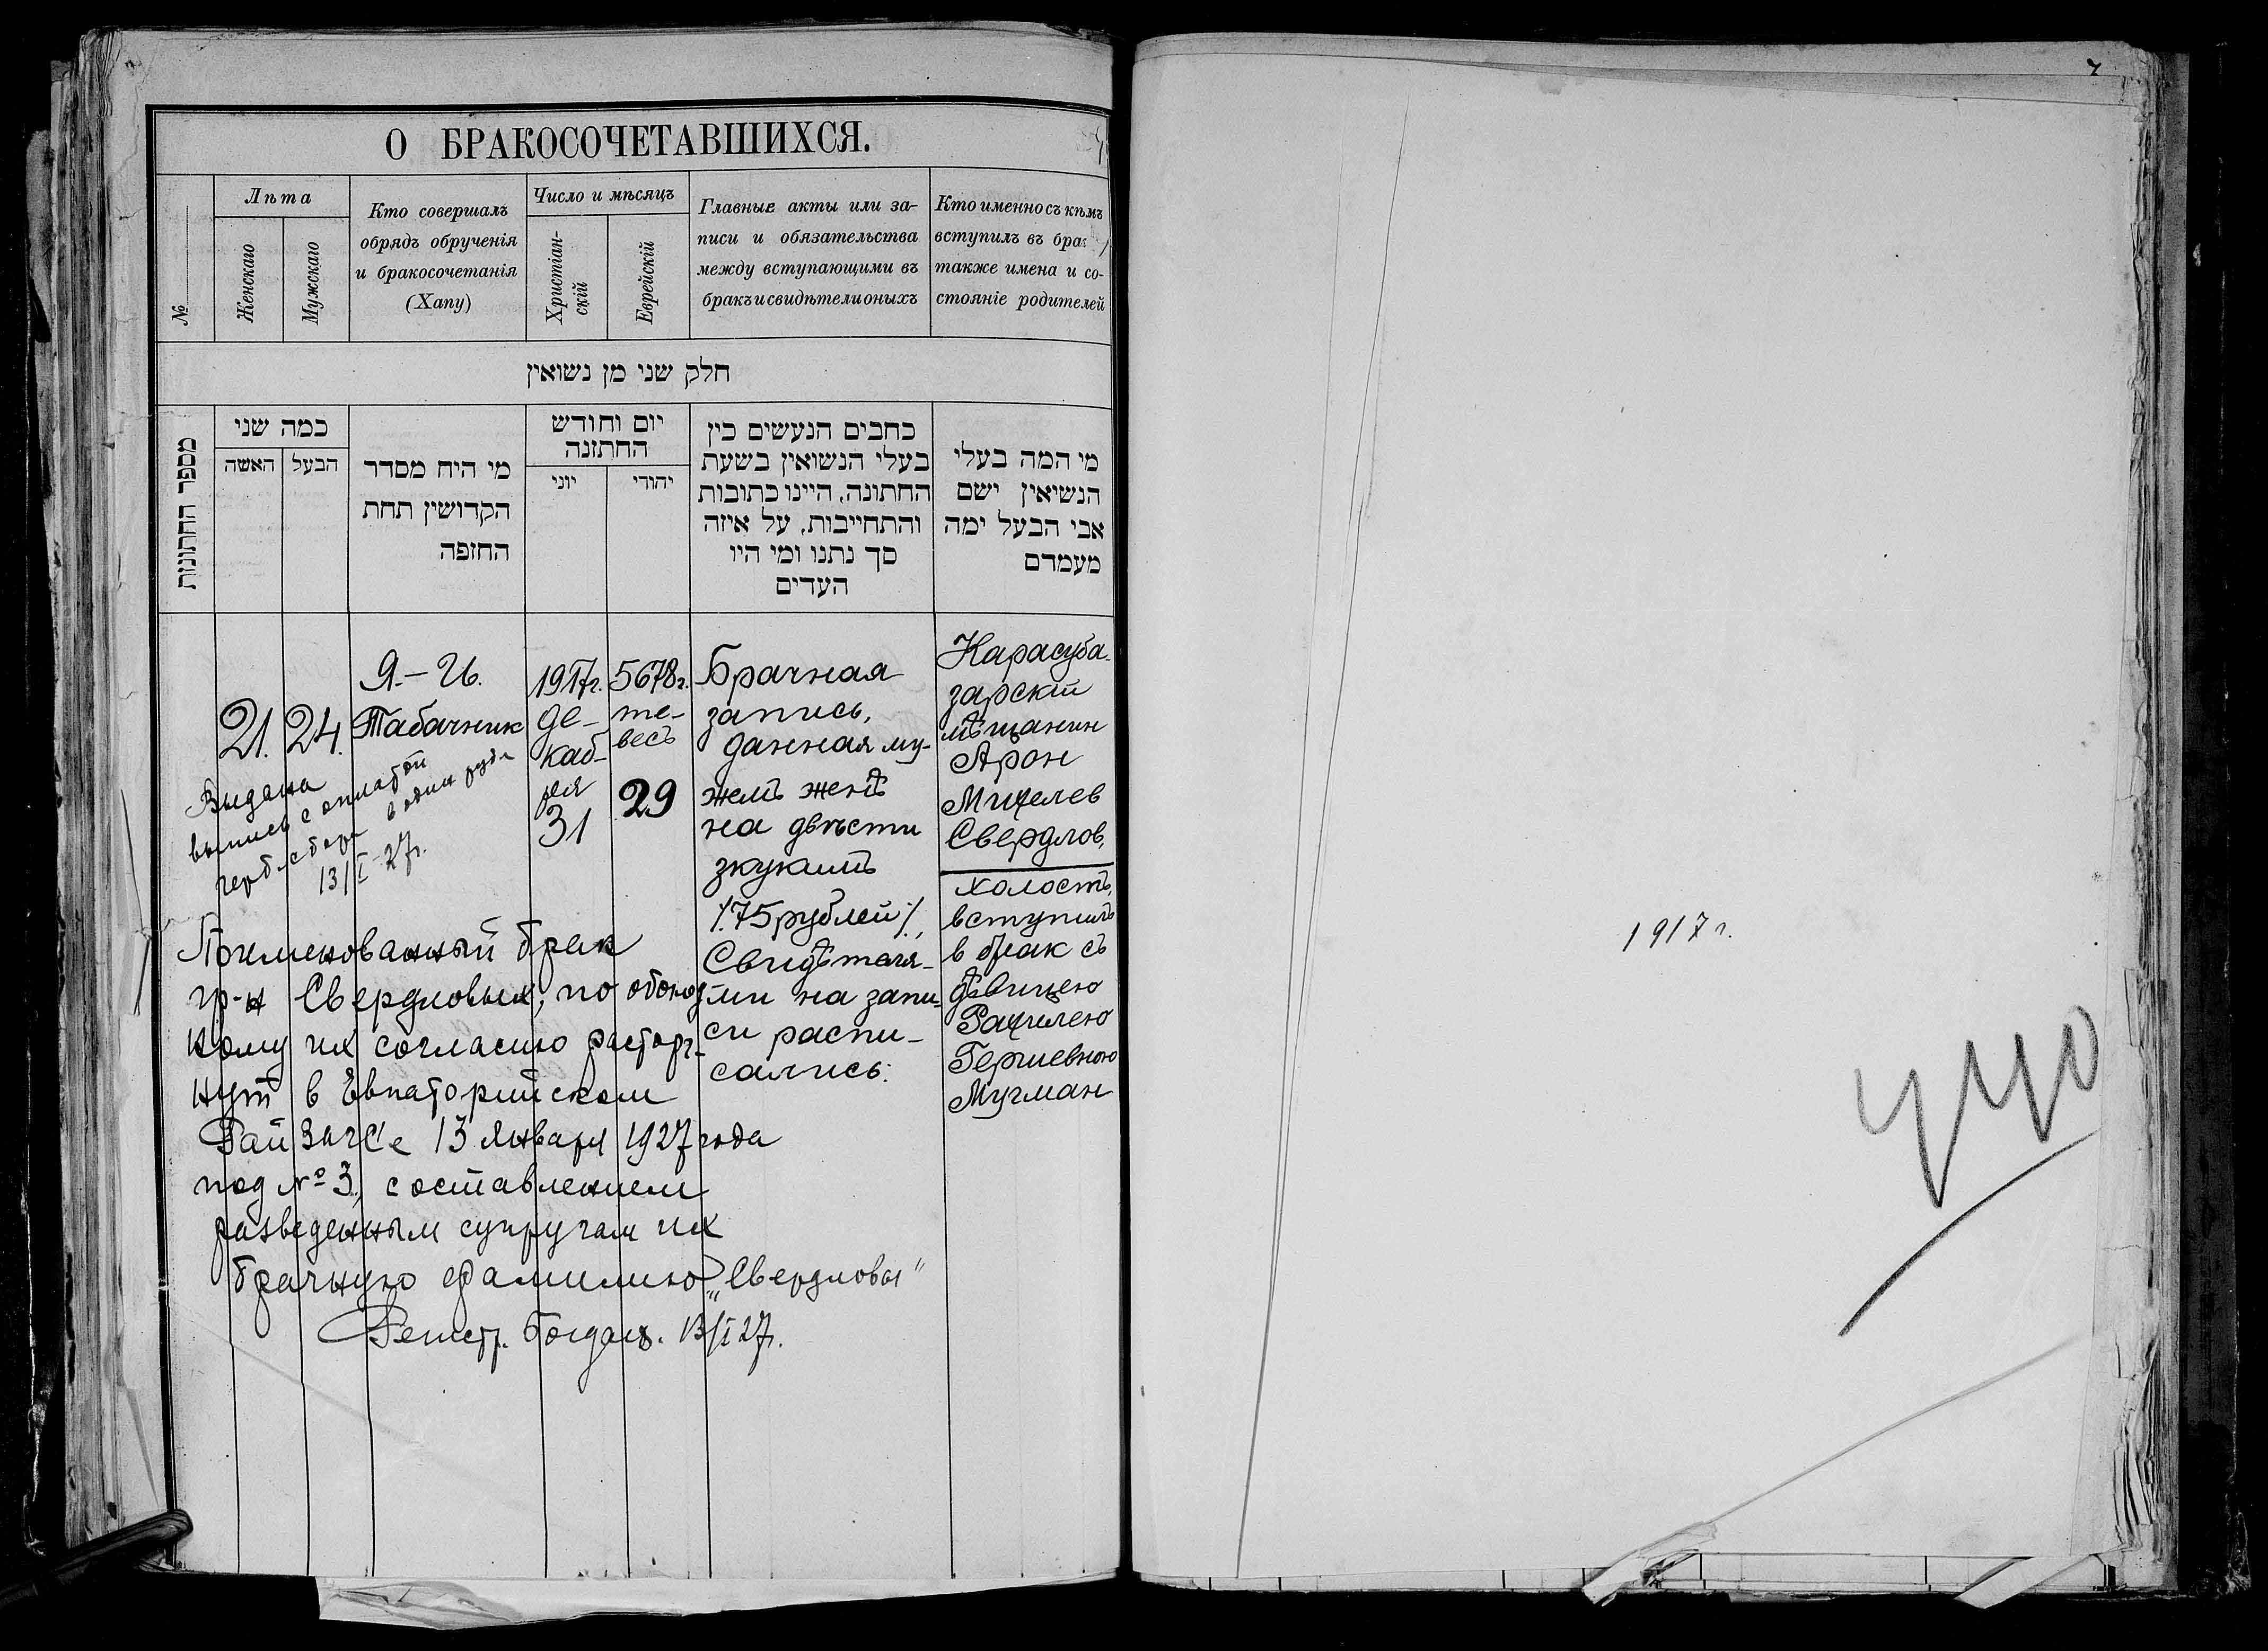 О БРАКОСОЧЕТАВШИХСЯ.
№
Лѣта
Женскаго
Мужскаго
Кто совершалъ
обрядъ обрученія
и бракосочетанія
(Хапу)
Число и мѣсяцъ
Христіан-
скій
Еврейскій
Главные акты или за-
писи и обязательства
между вступающими въ
бракъ и свидѣтели оныхъ
Кто именно съ кѣмъ
вступилъ въ бра
также имена и со-
стояніе родителей
חלק שני מן נשואין
מספר החתונות
כמה שני
האשה
הבעל
מי היח מסדר
הקדושין תחת
החופה
יום וחודש
החתונה
יוני
יהודי
כתבים הנעשים בין
בעלי הנשואין בשעת
החתונה, היינו כתובות
והתחייבות, על איזה
סך נתנו ומי היו
העדים
מי המה בעלי
הנשיאין ישם
אבי הבעל ימה
מעמדם
21.
24.
Я.-И.
Табачник
1917г.
де-
каб-
ря
31
5678г.
те-
весъ
29
Брачная
запись,
данная му-
жемъ женѣ
на двѣсти
зкукимъ
/.75 рублей/.,
Свидѣтели-
ми на запи-
си распи-
сались.
Карасуба-
зарскій
мѣщанин
Арон
Михелев
Свердлов,
холостъ,
вступилъ
в брак съ
дѣвицею
Рахилею
Гершевною
Мугман
Выдана
выпись с оплатой
герб. сбора в один рубл
13/I-27г.
Поименованный брак
гр-н Свердловых, по обоюд-
ному их согласию расторг-
нут в Евпаторийском
РайЗагсе 13 января 1927 года
под №3, с оставлением
разведенным супругам их
брачную фамилию „Свердловы"
13/I 27г.
7
1917 г.